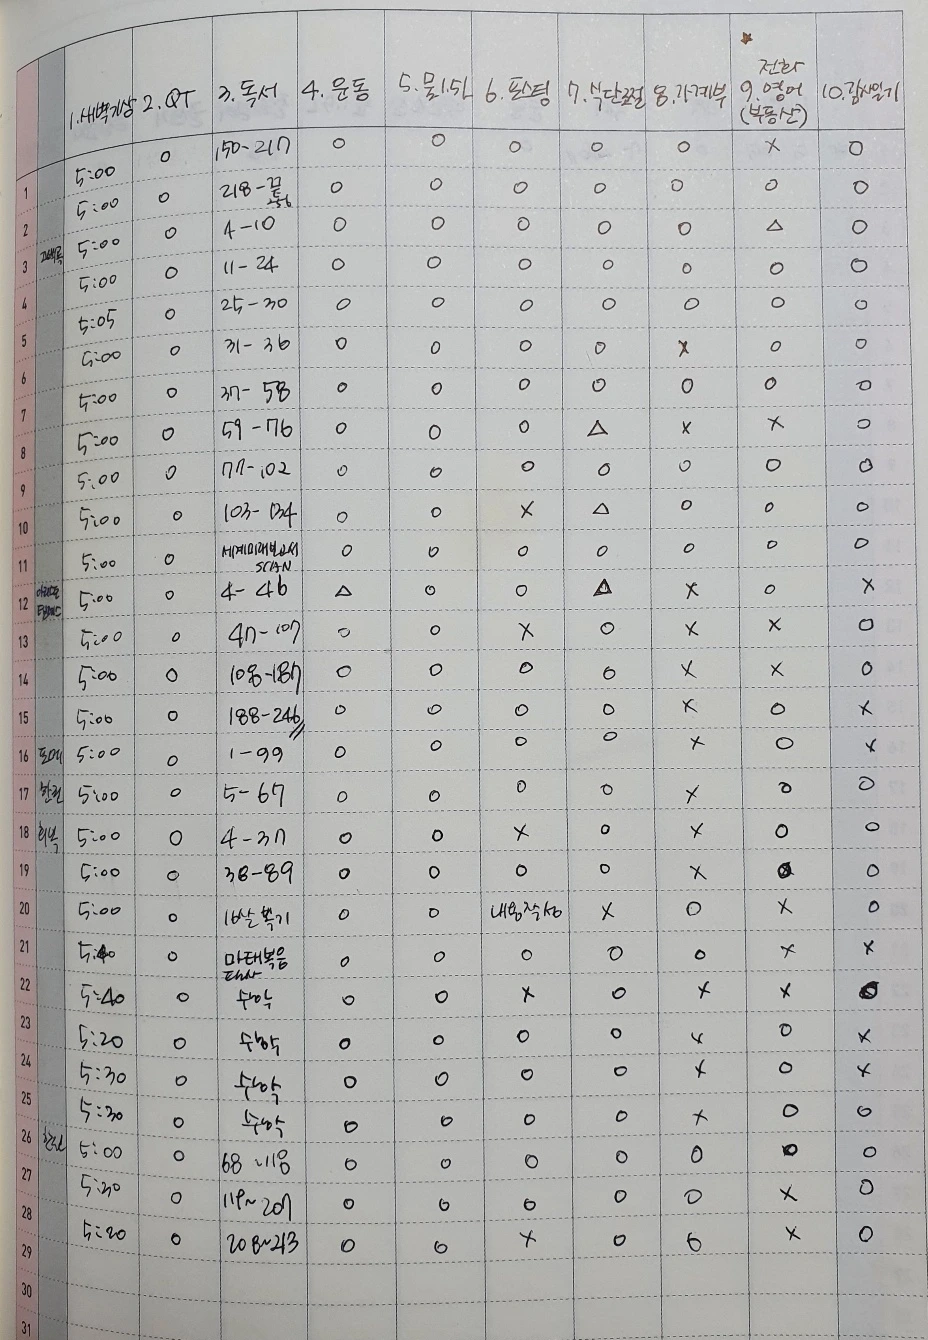 ★
1. 새벽기상 2. QT 3. 독서 4. 운동 5. 물1.5L 6. 포스팅 7. 식단조절 8. 가계부 전화 9. 영어 (부동산) 10. 감사일기
5:00 O 150-217 O O O O O X O
1 5:00 O 218-끝 O O O O O O O
2 5:00 O 4-10 O O O O O △ O
3 5:00 O 11-24 O O O O O O O
4 5:05 O 25-30 O O O O O O O
5 5:00 O 31-36 O O O O X O O
6 5:00 O 37-58 O O O O O O O
7 5:00 O 59-76 O O O △ X X O
8 5:00 O 77-102 O O O O O O O
9 5:00 O 103-134 O O X △ O O O
10 5:00 O 세계미래보고서 SCAN O O O O O O O
11 5:00 O 4-46 △ O O △ X O X
12 5:00 O 47-107 O O X O X X O
13 5:00 O 108-187 O O O O X X O
14 5:00 O 188-246 O O O O X O X
15 5:00 O 1-99 O O O O X O X
16 5:00 O 5-67 O O O O X O O
17 5:00 O 4-37 O O X O X O O
18 회복 5:00 O 38-89 O O O O X O O
19 5:00 O 16살 복기 O O 내용작성 X O X O
20 5:40 O 마태복음 O O O O O X X
21 5:40 O 수학 O O X O X X O
22 5:20 O 수학 O O O O X O X
23 5:30 O 수학 O O O O X O X
24 5:30 O 수학 O O O O X O O
25 5:00 O 68~118 O O O O O O O
26 5:30 O 119~207 O O O O O X O
27 5:20 O 208~243 O O X O O X O
28
29
30
31